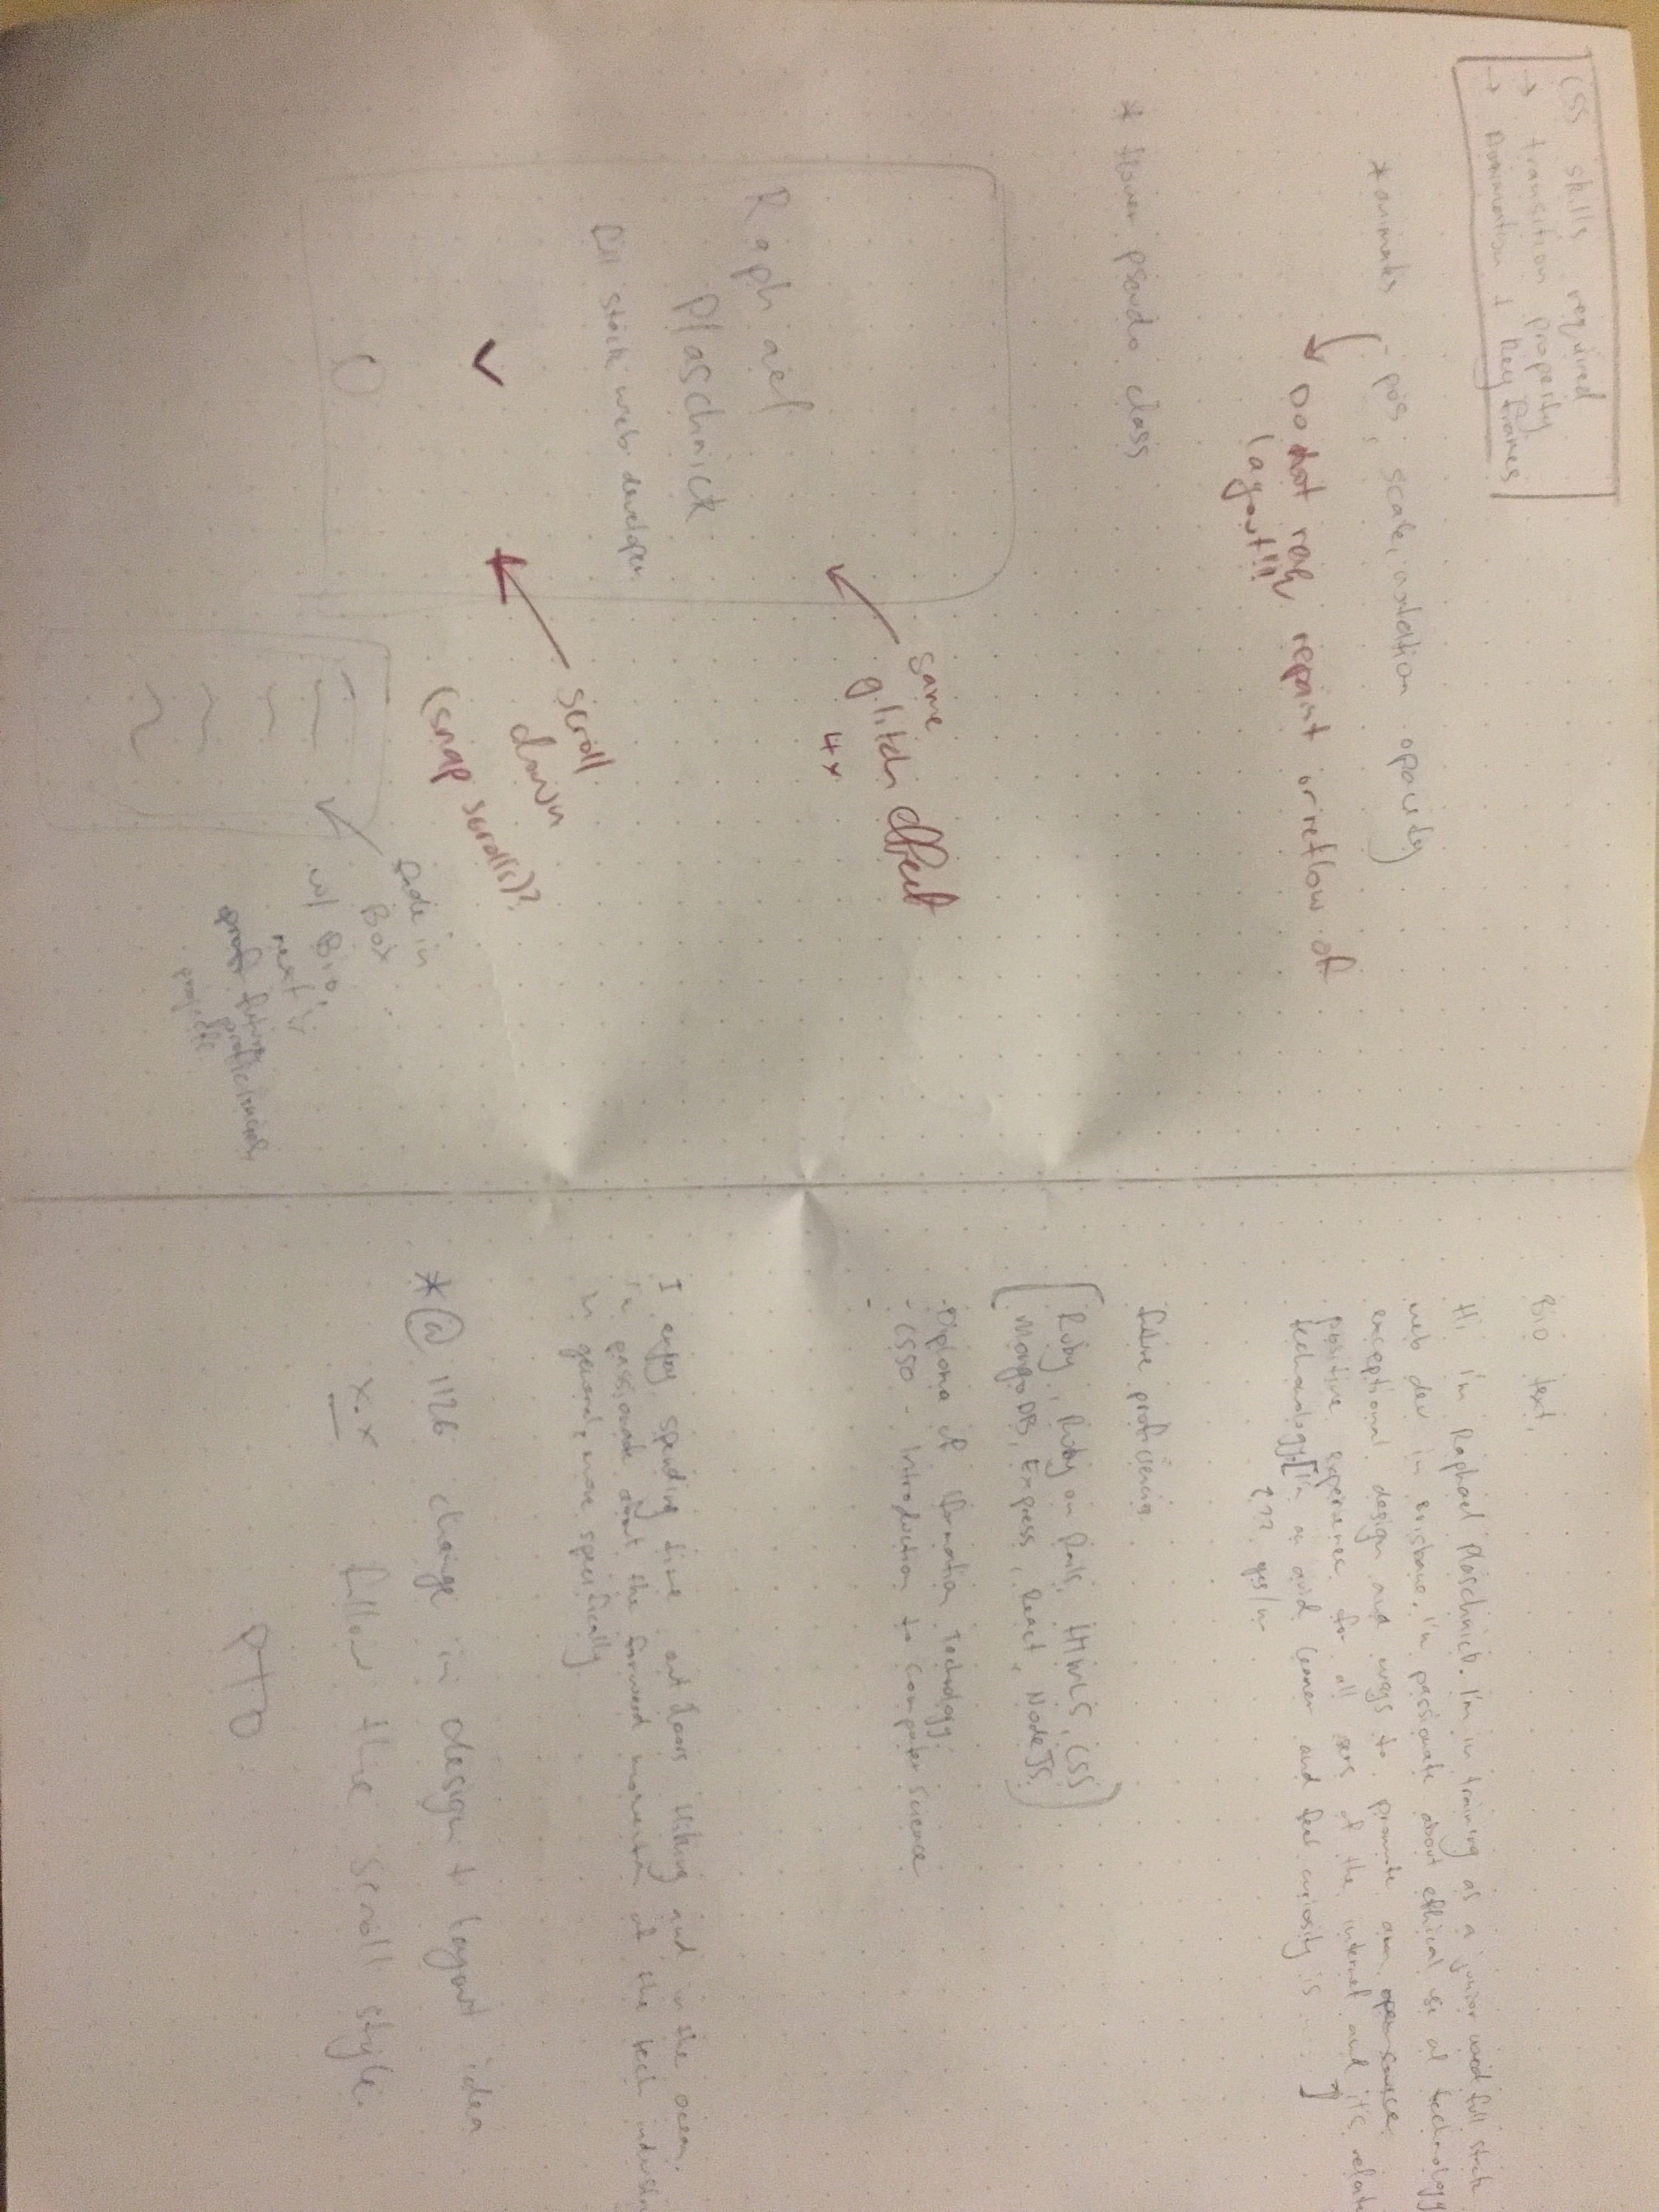 CSS skills required
→ transition property
→ Animation + Key frames
* animates - pos, scale, rotation opacity
Do not req repaint or reflow of
layout!!!
* Hover pseudo class
same
glitch effect
4x
Raphael
Plaschnick
full stack web developer
scroll
down
(snap scrolls)?
fade in
Box
w/ Bio,
next is
prof future
proficiencies,
projects
Bio text,
Hi I'm Raphael Plaschnick. I'm in training as a junior full stack
web dev in Brisbane. I'm passionate about ethical use of technology
exceptional design and ways to promote an open source
positive experience for all users of the internet and it's relate
technology. [I'm an avid learner and feel curiosity is ]
??? yes/no
future proficiencies
[Ruby, Ruby on Rails, HTML5, CSS
MongoDB, Express, React, NodeJS.]
- Diploma of Information Technology
- CS50 - Introduction to Computer Science
-
I enjoy spending time outdoors Hiking and in the ocean.
I'm passionate about the forward momentum of the tech industry
in general, more specifically
* @ 1126 change in design + layout idea
x.x follow the scroll style.
PTO